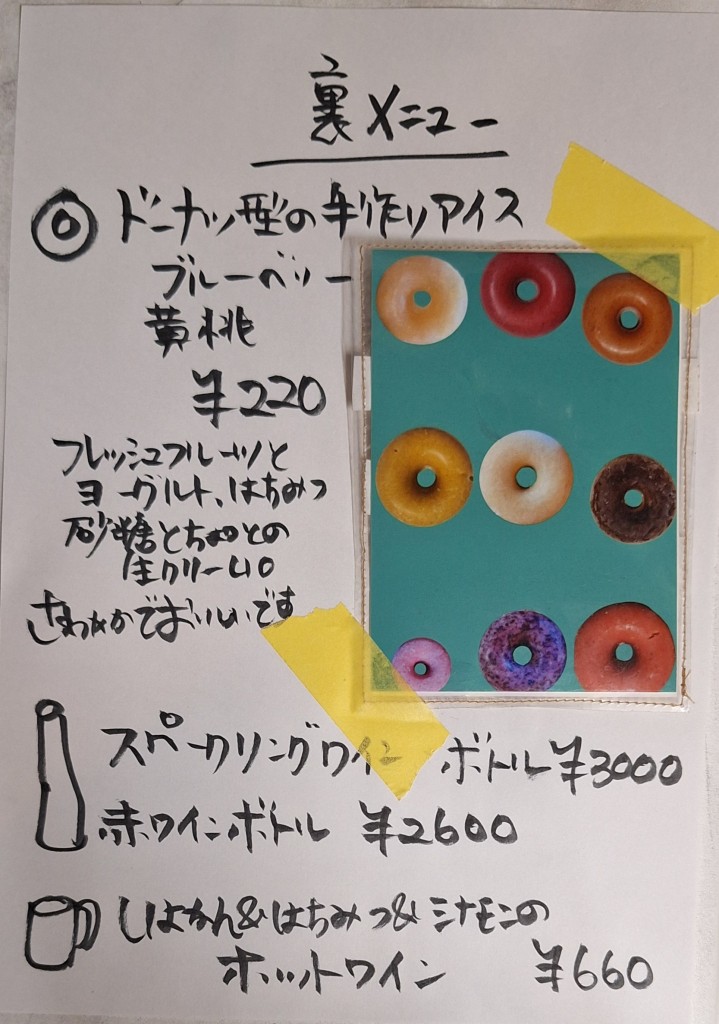 裏メニュー
ドーナッツ型の手作りアイス
ブルーベリー
黄桃
¥220
フレッシュフルーツと
ヨーグルト、はちみつ
砂糖とちょっとの
生クリーム。
さわやかでおいしいです
スパークリングワイン ボトル ¥3000
赤ワインボトル ¥2600
しょうがん&はちみつ&シナモンの
ホットワイン ¥660